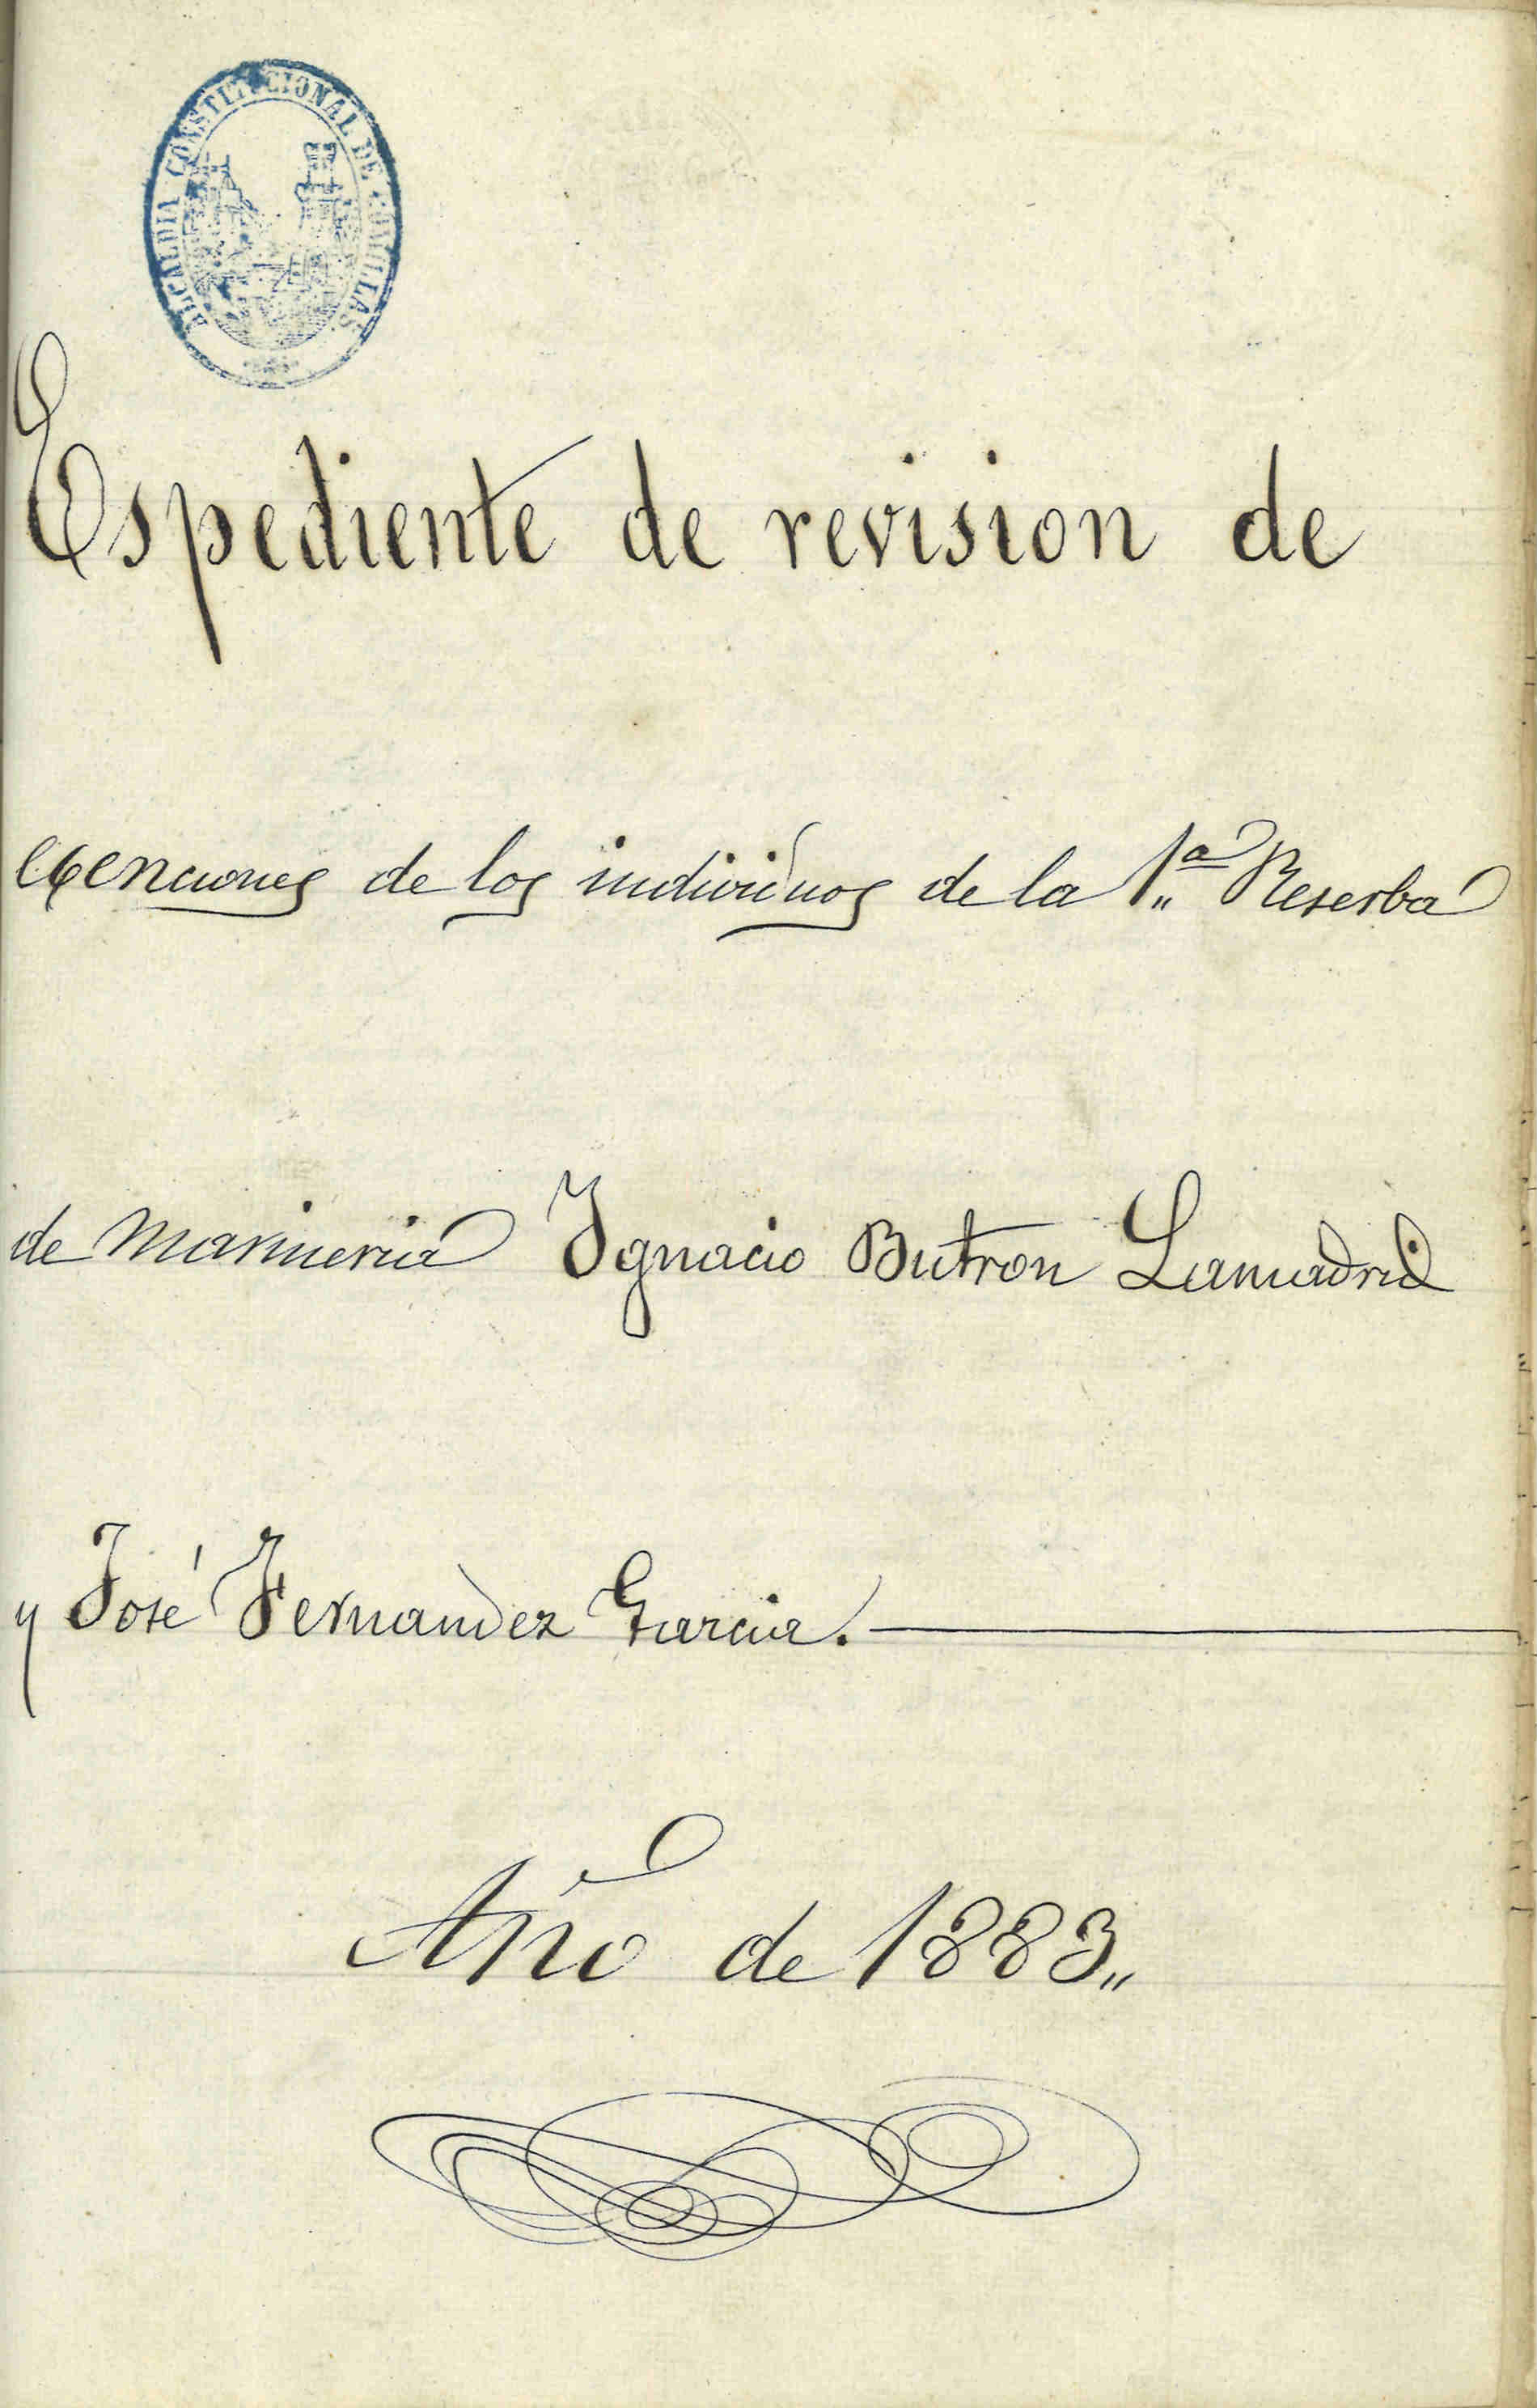 ALCALDIA CONSTITUCIONAL DE COMILLAS
Espediente de revision de
exenciones de los individuos de la 1.ª Reserba
de marineria Ygnacio Butron Lamadrid
y José Fernandez Garcia.
Año de 1883„